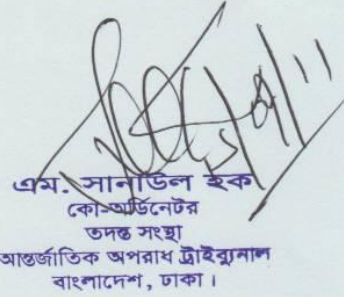 এম. সানাউল হক
কো-অর্ডিনেটর
তদন্ত সংস্থা
আন্তর্জাতিক অপরাধ ট্রাইব্যুনাল
বাংলাদেশ, ঢাকা।